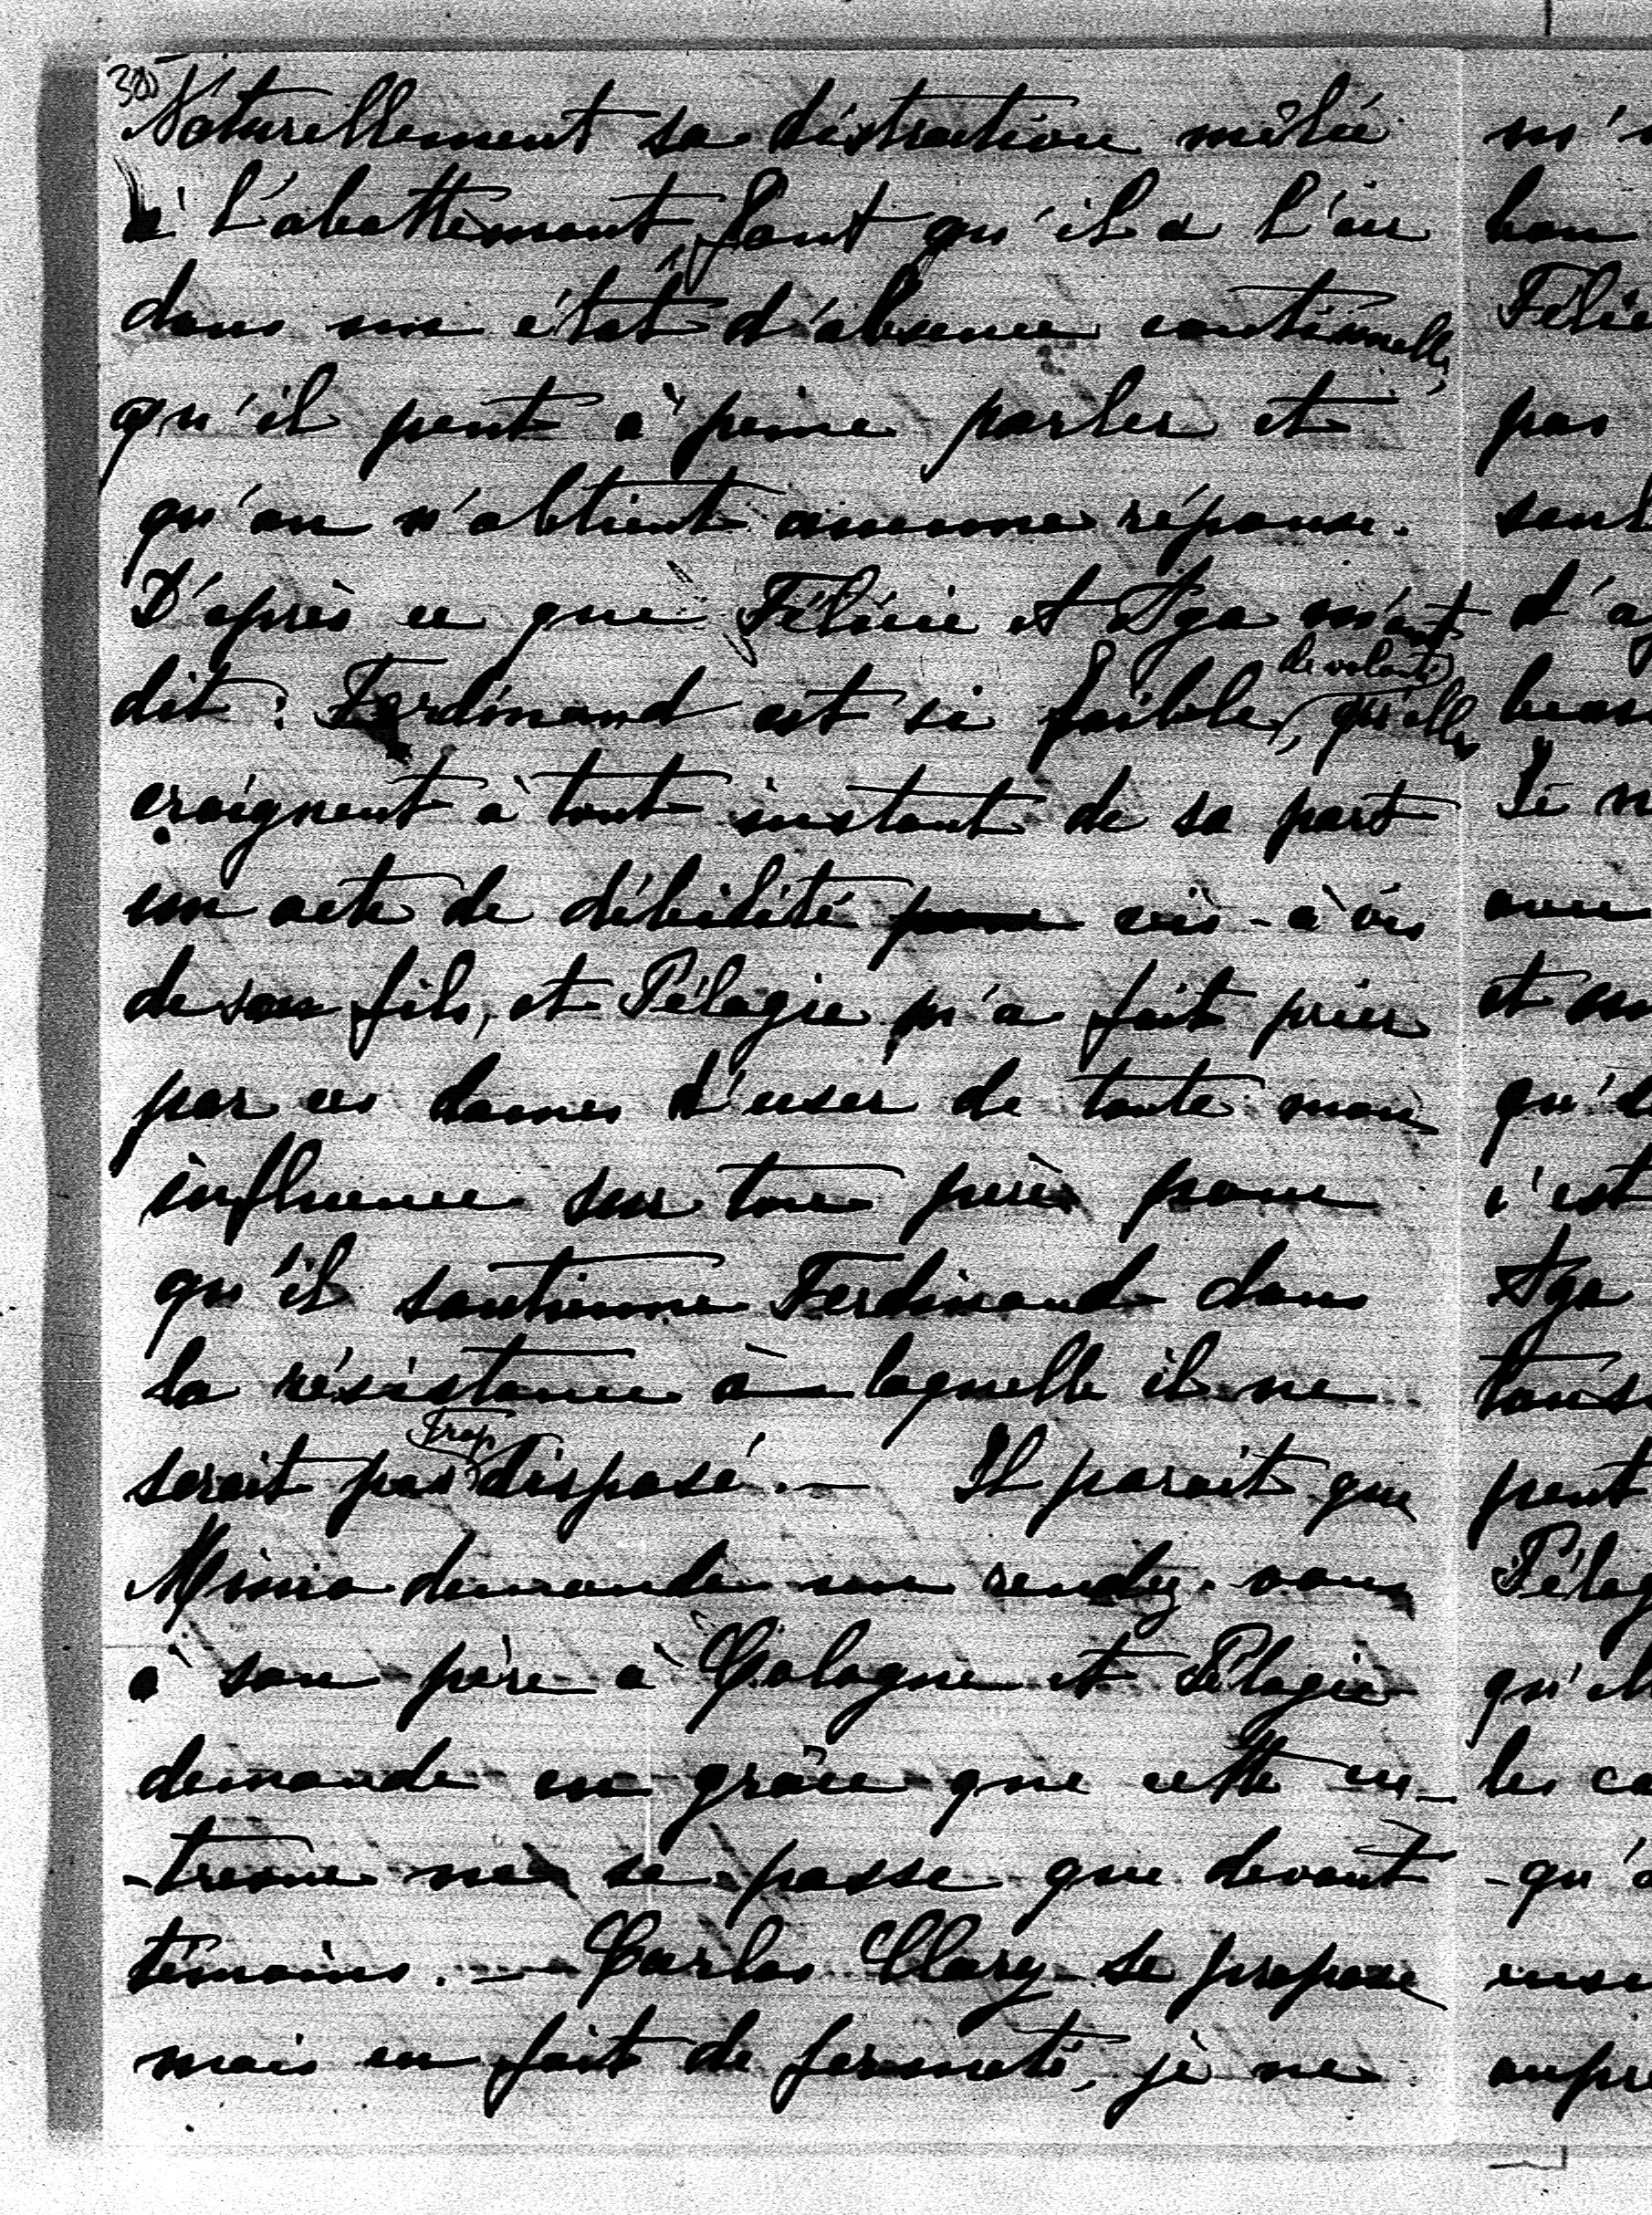 305
Naturellement sa distraction mêlée
à l'abattement, font qu'il a l'air
dans un état d'absence continuelle,
qu'il peut à peine parler et
qu'on n'obtient aucune réponse.
D'après ce que Félicie et Aga m'ont
dit : Ferdinand est si faible de volonté, qu'elles
craignent à tout instant de sa part
un acte de débilité pour vis-à-vis
de son fils, et Pélagie m'a fait prier
par ces dames d'user de toute mon
influence sur ton père pour
qu'il soutienne Ferdinand dans
la résistance à laquelle il ne
serait pas trop disposé. — Il parait que
Mimio demande un rendez-vous
à son père à Cologne et Pélagie
demande en grâce que cette en-
-trevue ne se passe que devant
témoins. — Carlos Clary se propose
mais en fait de fermeté, je ne
m'
bon
Félic
pas
d'a
Je n
et
qu'
c'est
Aga
tous
peut
Pélag
qu'el
les ca
-qu'a